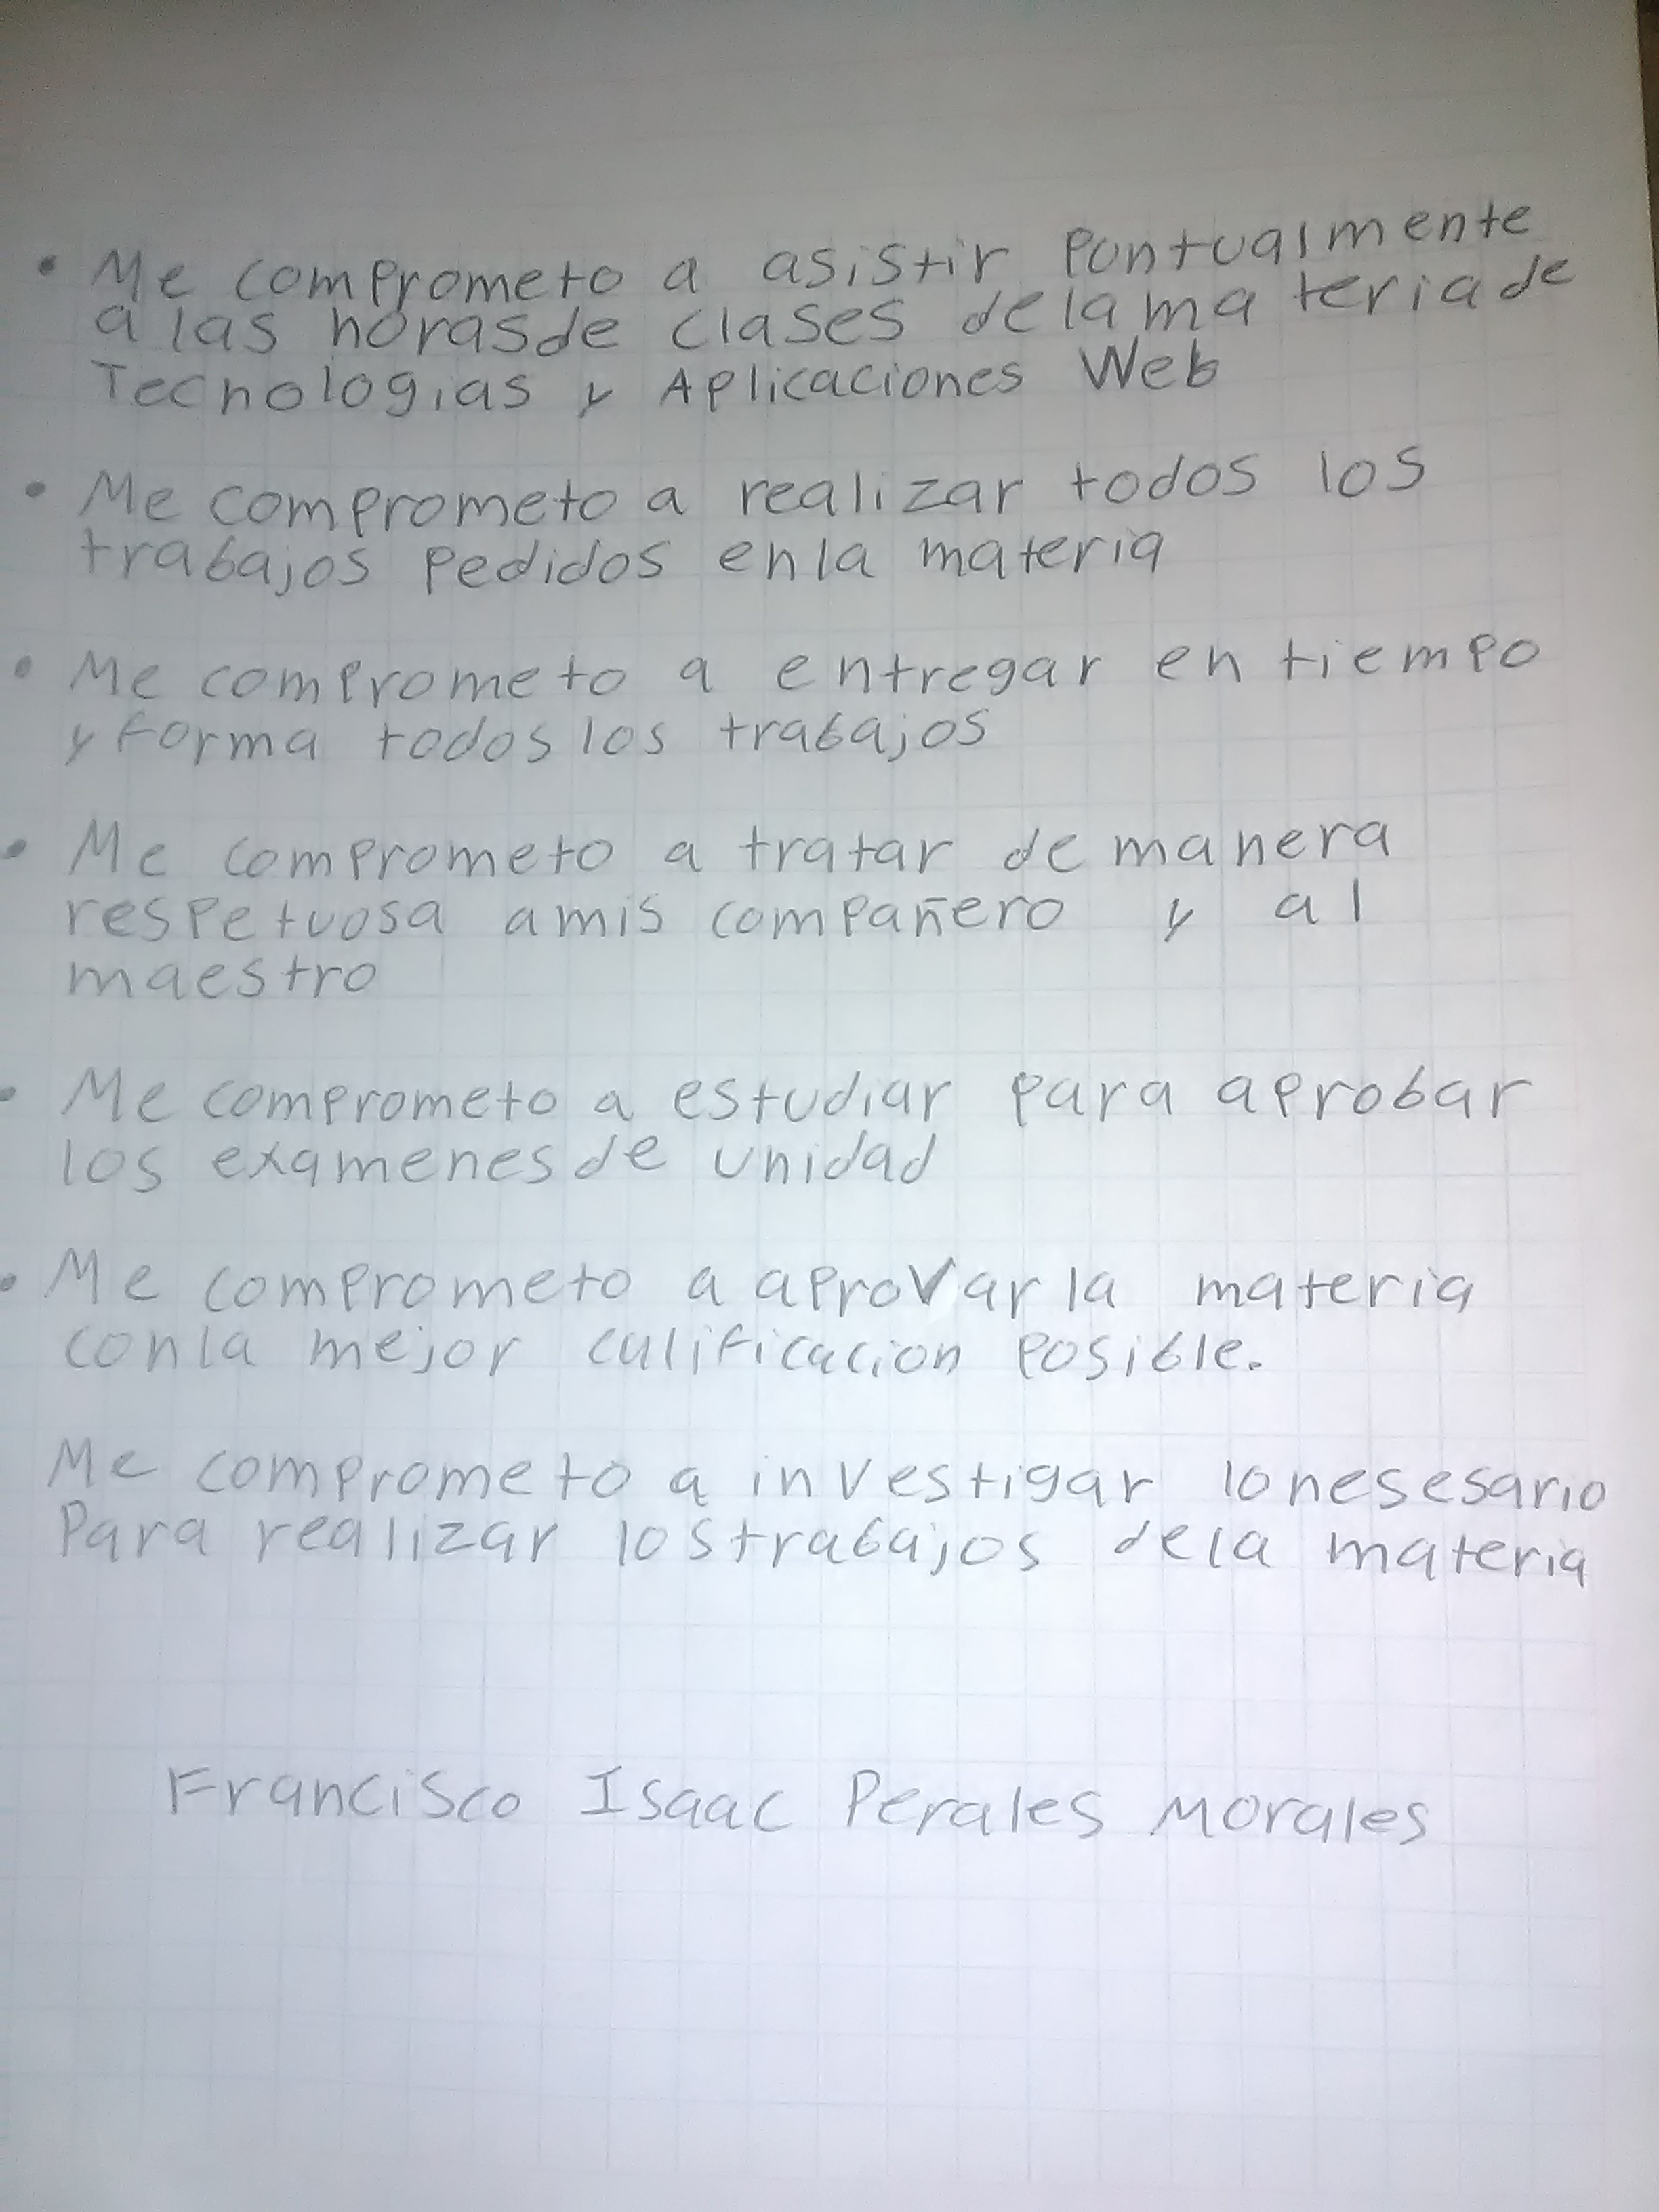 • Me comprometo a asistir puntualmente
a las horas de clases de la materia de
Tecnologias y Aplicaciones Web
• Me comprometo a realizar todos los
trabajos pedidos en la materia
• Me comprometo a entregar en tiempo
y forma todos los trabajos
• Me comprometo a tratar de manera
respetuosa a mis compañero y al
maestro
• Me comprometo a estudiar para aprobar
los examenes de unidad
• Me comprometo a aprovar la materia
con la mejor calificacion posible.
Me comprometo a investigar lo nesesario
Para realizar los trabajos de la materia
Francisco Isaac Perales Morales